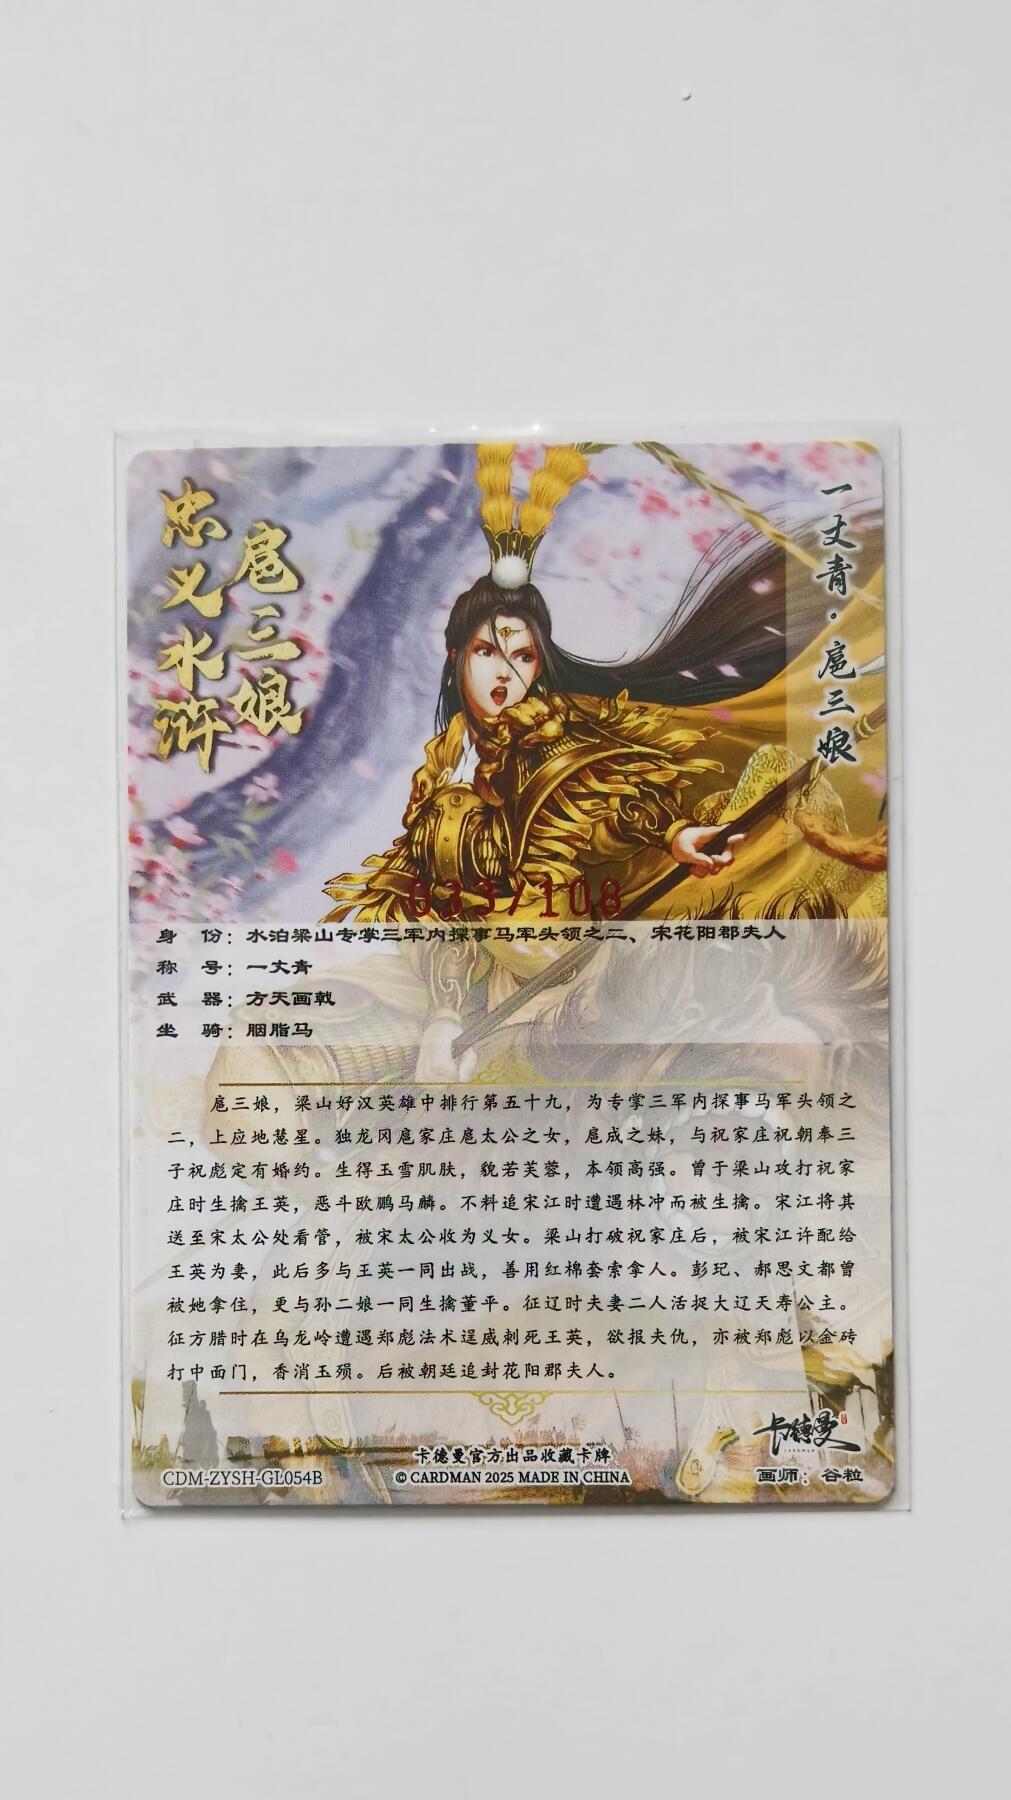 忠义水浒
扈三娘
一丈青·扈三娘
033/108
身 份：水泊梁山专掌三军内探事马军头领之二、宋花阳郡夫人
称 号：一丈青
武 器：方天画戟
坐 骑：胭脂马
扈三娘，梁山好汉英雄中排行第五十九，为专掌三军内探事马军头领之
二，上应地慧星。独龙冈扈家庄扈太公之女，扈成之妹，与祝家庄祝朝奉三
子祝彪定有婚约。生得玉雪肌肤，貌若芙蓉，本领高强。曾于梁山攻打祝家
庄时生擒王英，恶斗欧鹏马麟。不料追宋江时遭遇林冲而被生擒。宋江将其
送至宋太公处看管，被宋太公收为义女。梁山打破祝家庄后，被宋江许配给
王英为妻，此后多与王英一同出战，善用红棉套索拿人。彭玘、郝思文都曾
被她拿住，更与孙二娘一同生擒董平。征辽时夫妻二人活捉大辽天寿公主。
征方腊时在乌龙岭遭遇郑彪法术逞威刺死王英，欲报夫仇，亦被郑彪以金砖
打中面门，香消玉殒。后被朝廷追封花阳郡夫人。
卡德曼
CARDMAN
CDM-ZYSH-GL054B
卡德曼官方出品收藏卡牌
© CARDMAN 2025 MADE IN CHINA
画师：谷粒